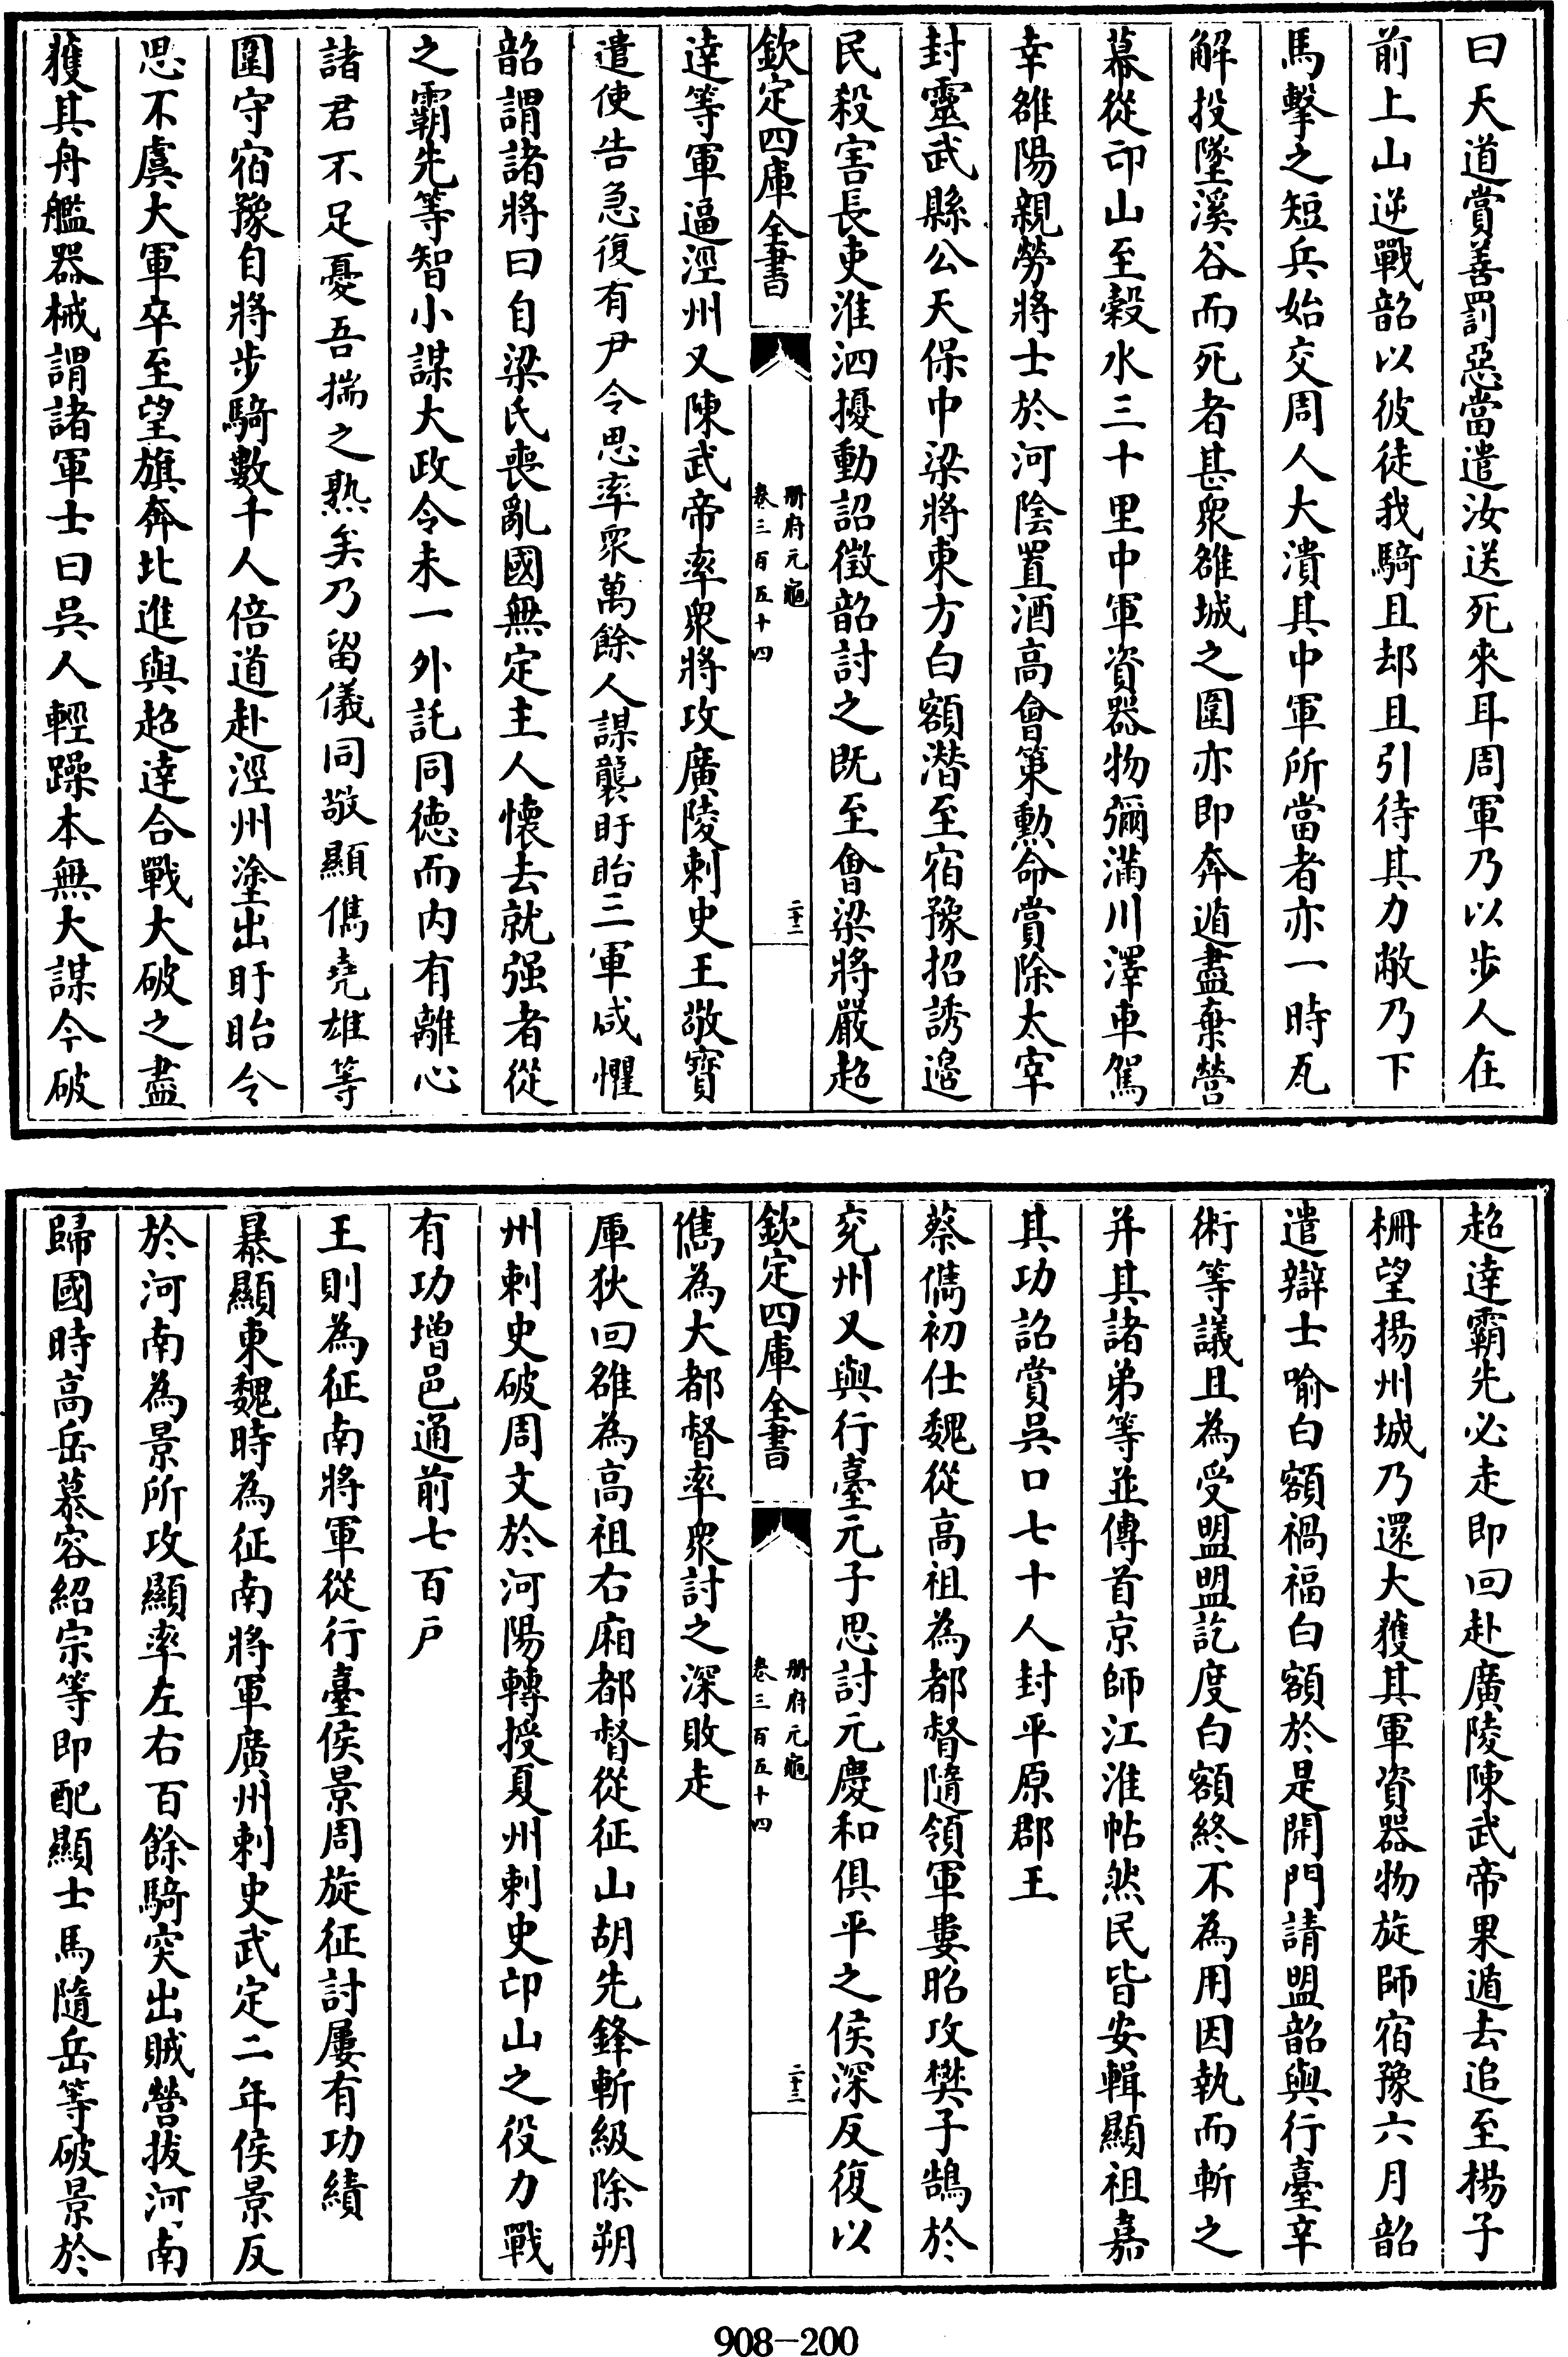 曰天道賞善罰惡當遣汝送死來耳周軍乃以步人在
前上山逆戰韶以彼徒我騎且却且引待其力敝乃下
馬擊之短兵始交周人大潰其中軍所當者亦一時瓦
解投墜溪谷而死者甚衆雒城之圍亦即奔遁盡棄營
幕從卭山至穀水三十里中軍資器物彌滿川澤車駕
幸雒陽親勞將士於河隂置酒高會策勲命賞除太宰
封靈武縣公天保中梁將東方白額潛至宿豫招誘邉
民殺害長吏淮泗擾動詔徵韶討之既至會梁將嚴超
欽定四庫全書
册府元龜
卷三百五十四
二十二
達等軍逼涇州又陳武帝率衆將攻廣陵刺史王敬寳
遣使告急復有尹令思率衆萬餘人謀襲盱眙三軍咸懼
韶謂諸將曰自梁氏喪亂國無定主人懷去就强者從
之霸先等智小謀大政令未一外託同德而内有離心
諸君不足憂吾揣之熟矣乃留儀同敬顯儁堯雄等
圍守宿豫自將步騎數千人倍道赴涇州塗出盱眙令
思不虞大軍卒至望旗奔北進與超達合戰大破之盡
獲其舟艦器械謂諸軍士曰吳人輕躁本無大謀今破
超達霸先必走即回赴廣陵陳武帝果遁去追至揚子
柵望揚州城乃還大獲其軍資器物旋師宿豫六月韶
遣辯士喻白額禍福白額於是開門請盟韶與行臺辛
術等議且為受盟盟訖度白額終不為用因執而斬之
并其諸弟等並傳首京師江淮帖然民皆安輯顯祖嘉
其功詔賞吳口七十人封平原郡王
蔡儁初仕魏從高祖為都督隨領軍婁昭攻樊子鵠於
兖州又與行臺元子思討元慶和俱平之侯深反復以
欽定四庫全書
册府元龜
卷三百五十四
二十三
儁為大都督率衆討之深敗走
厙狄回雒為高祖右廂都督從征山胡先鋒斬級除朔
州刺史破周文於河陽轉授夏州刺史卭山之役力戰
有功増邑通前七百戸
王則為征南將軍從行臺侯景周旋征討屢有功績
暴顯東魏時為征南將軍廣州刺史武定二年侯景反
於河南為景所攻顯率左右百餘騎突出賊營拔河南
歸國時高岳慕容紹宗等即配顯士馬隨岳等破景於
908-200